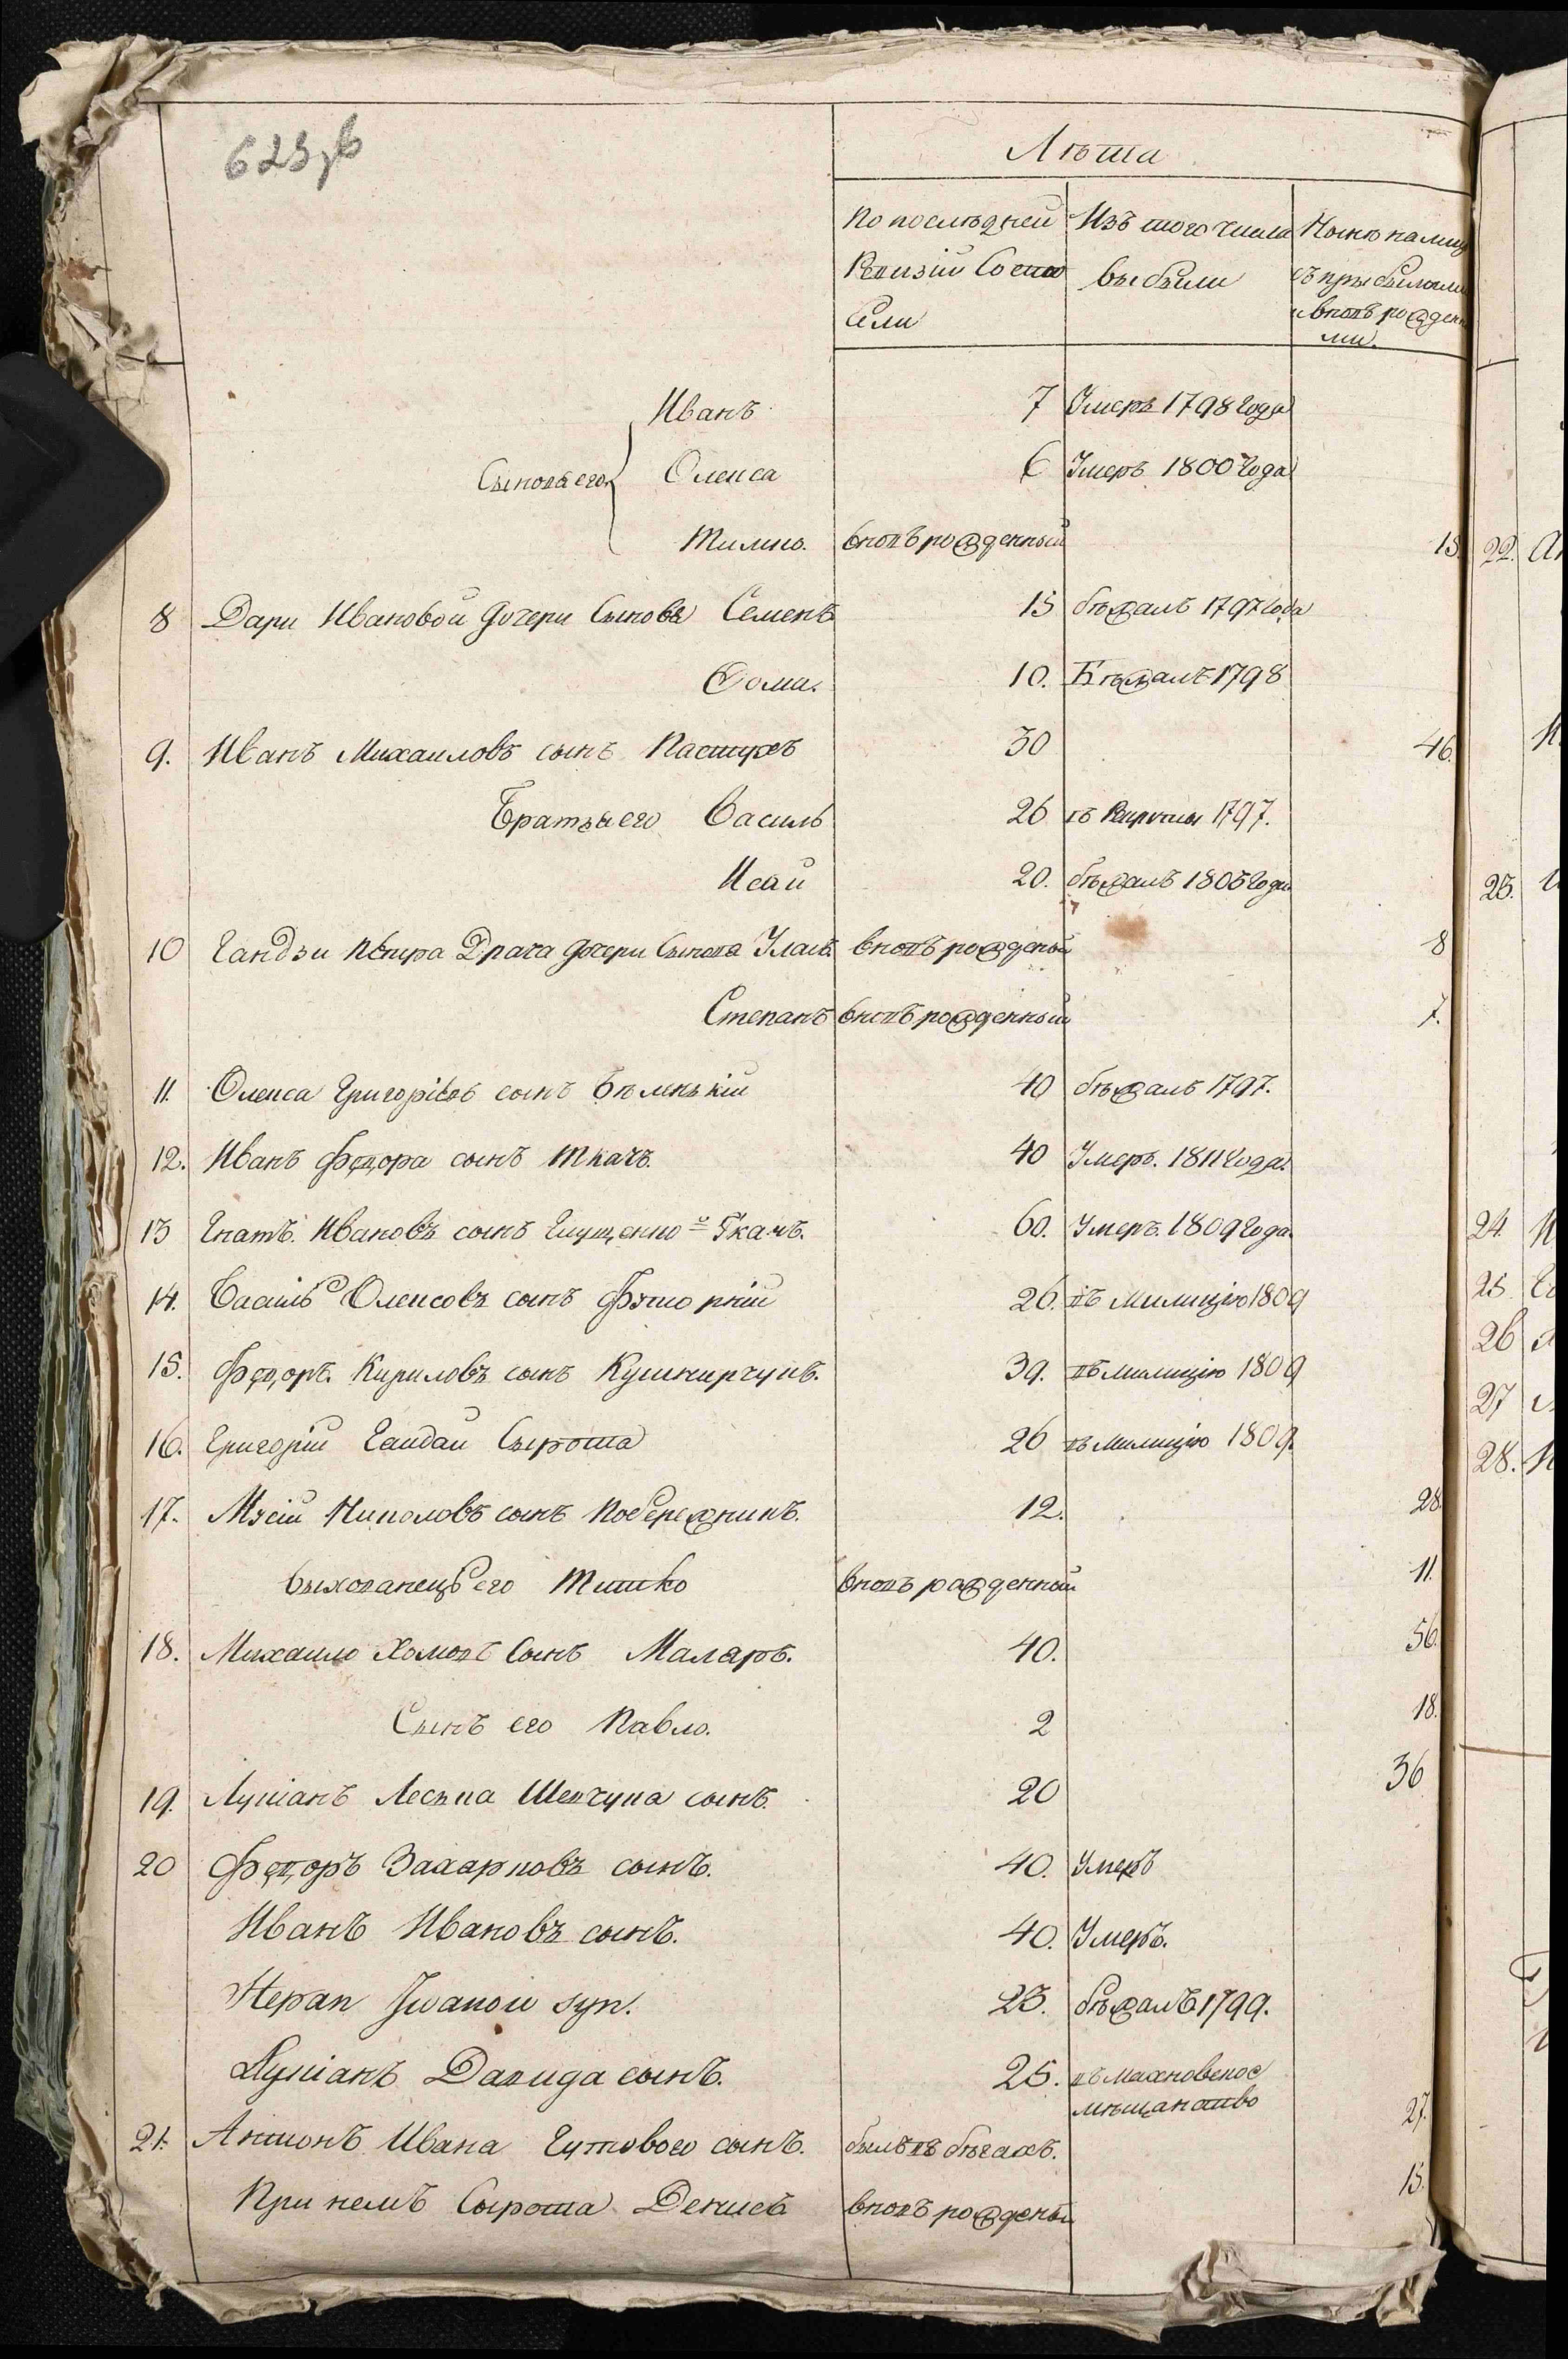 623
Лѣта
По послѣдней Изъ того числа Нынѣ налиц
Ревизіи Состо выбыли съ прыбылыми
яли и вновь рожден
ми.
Иванъ 7 Умеръ 1798 года
Сыновя его Олекса 6 Умеръ 1800 года
Тимко. вновь рожденный 15.
8 Дари Ивановой дочери Сыновя Семенъ 15 бѣжалъ 1797 года
Фома. 10. Бѣжалъ 1798
9. Иванъ Михаиловъ сынъ Пастухъ 30 46.
Братья его Василь 26 въ Рекруты 1797.
Исай 20. бѣжалъ 1805 года
10 Гандзи Петра Драча дочери Сыновя Уласъ вновь рожденый 8
Степанъ вновь рожденный 7.
11. Олекса Григоріевъ сынъ Бѣленькій 40 бѣжалъ 1797.
12. Иванъ Федора сынъ Ткачъ. 40 Умеръ. 1811 года.
13 Гнатъ. Ивановъ сынъ Ткачъ. 60. Умеръ. 1809 года.
14. Василь Олексовъ сынъ 26. въ Милицію 1809
15. Федоръ. Кириловъ сынъ Кушнирчукъ. 39. въ милицію 1809
16. Григорій Гайдай Сырота 26 въ Милицію 1809.
17. Мусій Николовъ сынъ Побережникъ. 12. 28.
Выхованецъ его Тишко вновь рожденный 11.
18. Михайло Хомовъ Сынъ Маларъ. 40. 56.
Сынъ его Павло. 2 18.
19. Лукіанъ Леська Шевчука сынъ. 20 36
20 Федоръ Захарковъ сынъ. 40. Умеръ
Иванъ Ивановъ сынъ. 40. Умеръ.
Stepan Jwanow syn. 23. бѣжалъ 1799.
Лукіанъ Давида сынъ. 25. въ Махновское
мѣщанство
21. Антонъ Ивана Гутового сынъ. былъ въ бѣгахъ. 27.
При немъ Сырота Денисъ вновь рожденый 15.
22.
23.
24.
25.
26
27
28.